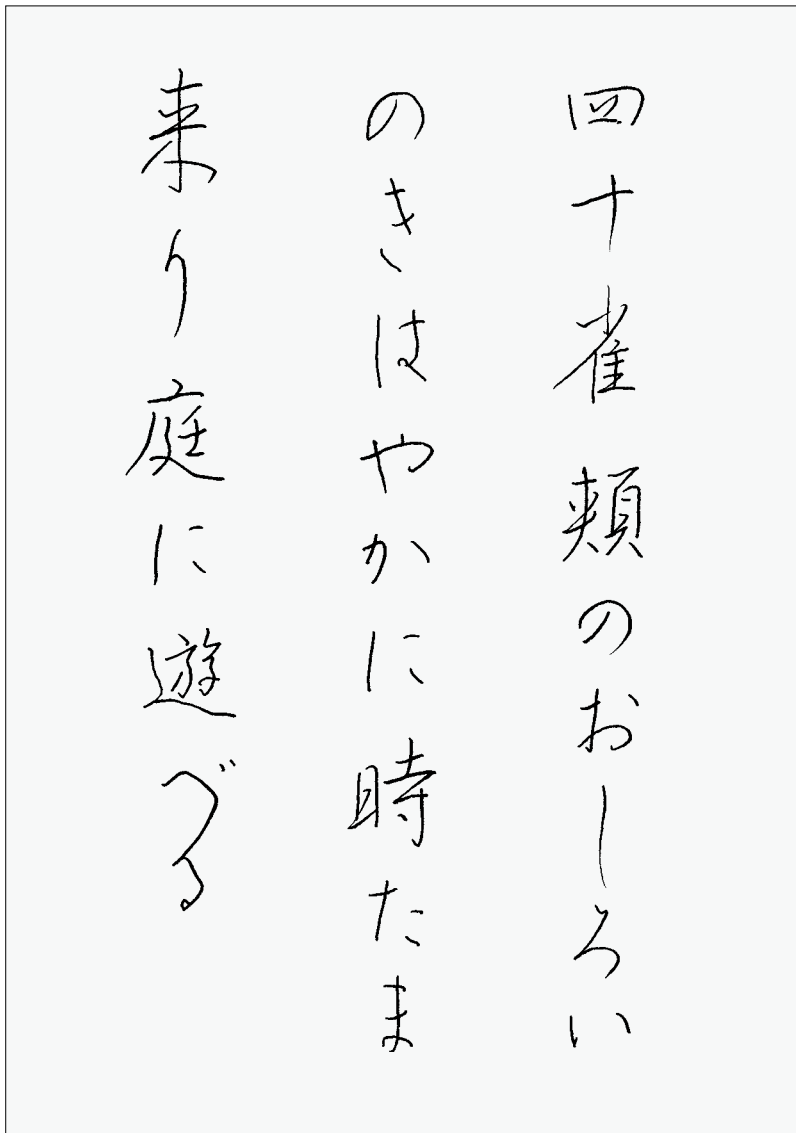 四十雀頬のおしろい
のきはやかに時たま
来り庭に遊べる